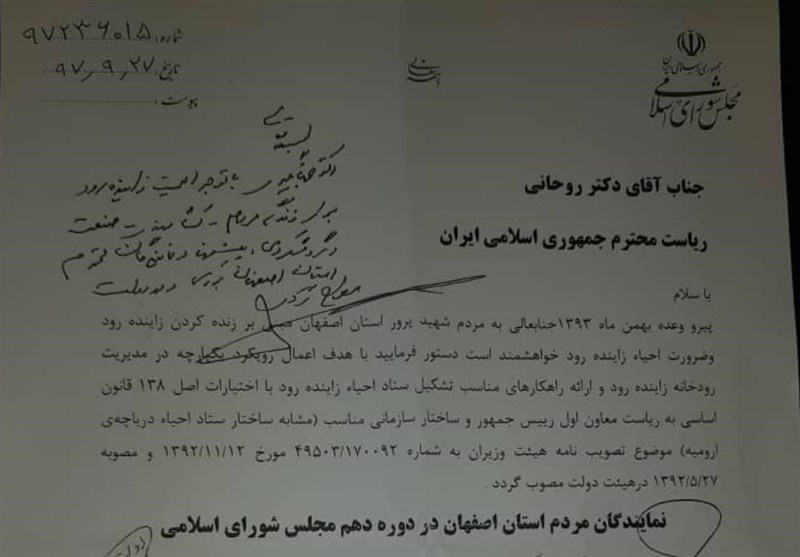 شماره: ۹۷۲۳۶۰۱۵
تاریخ: ۹۷,۹,۲۷
پیوست:
جمهوری اسلامی ایران
مجلس شورای اسلامی
دکتر با توجه اهمیت زاینده رود
برای زندگی مردم - کشاورزی - صنعت
و گردشگری، پیشنهاد نمایندگان محترم
استان اصفهان بررسی و در دولت
مطرح گردد
جناب آقای دکتر روحانی
ریاست محترم جمهوری اسلامی ایران
با سلام
پیرو وعده بهمن ماه ۱۳۹۳جنابعالی به مردم شهید پرور استان اصفهان مبنی بر زنده کردن زاینده رود
وضرورت احیاء زاینده رود خواهشمند است دستور فرمایید با هدف اعمال رویکرد یکپارچه در مدیریت
رودخانه زاینده رود و ارائه راهکارهای مناسب تشکیل ستاد احیاء زاینده رود با اختیارات اصل ۱۳۸ قانون
اساسی به ریاست معاون اول رییس جمهور و ساختار سازمانی مناسب (مشابه ساختار ستاد احیاء دریاچه‌ی
ارومیه) موضوع تصویب نامه هیئت وزیران به شماره ۴۹۵۰۳/۱۷۰۰۹۲ مورخ ۱۳۹۲/۱۱/۱۲ و مصوبه
۱۳۹۲/۵/۲۷ درهیئت دولت مصوب گردد .
نمایندگان مردم استان اصفهان در دوره دهم مجلس شورای اسلامی